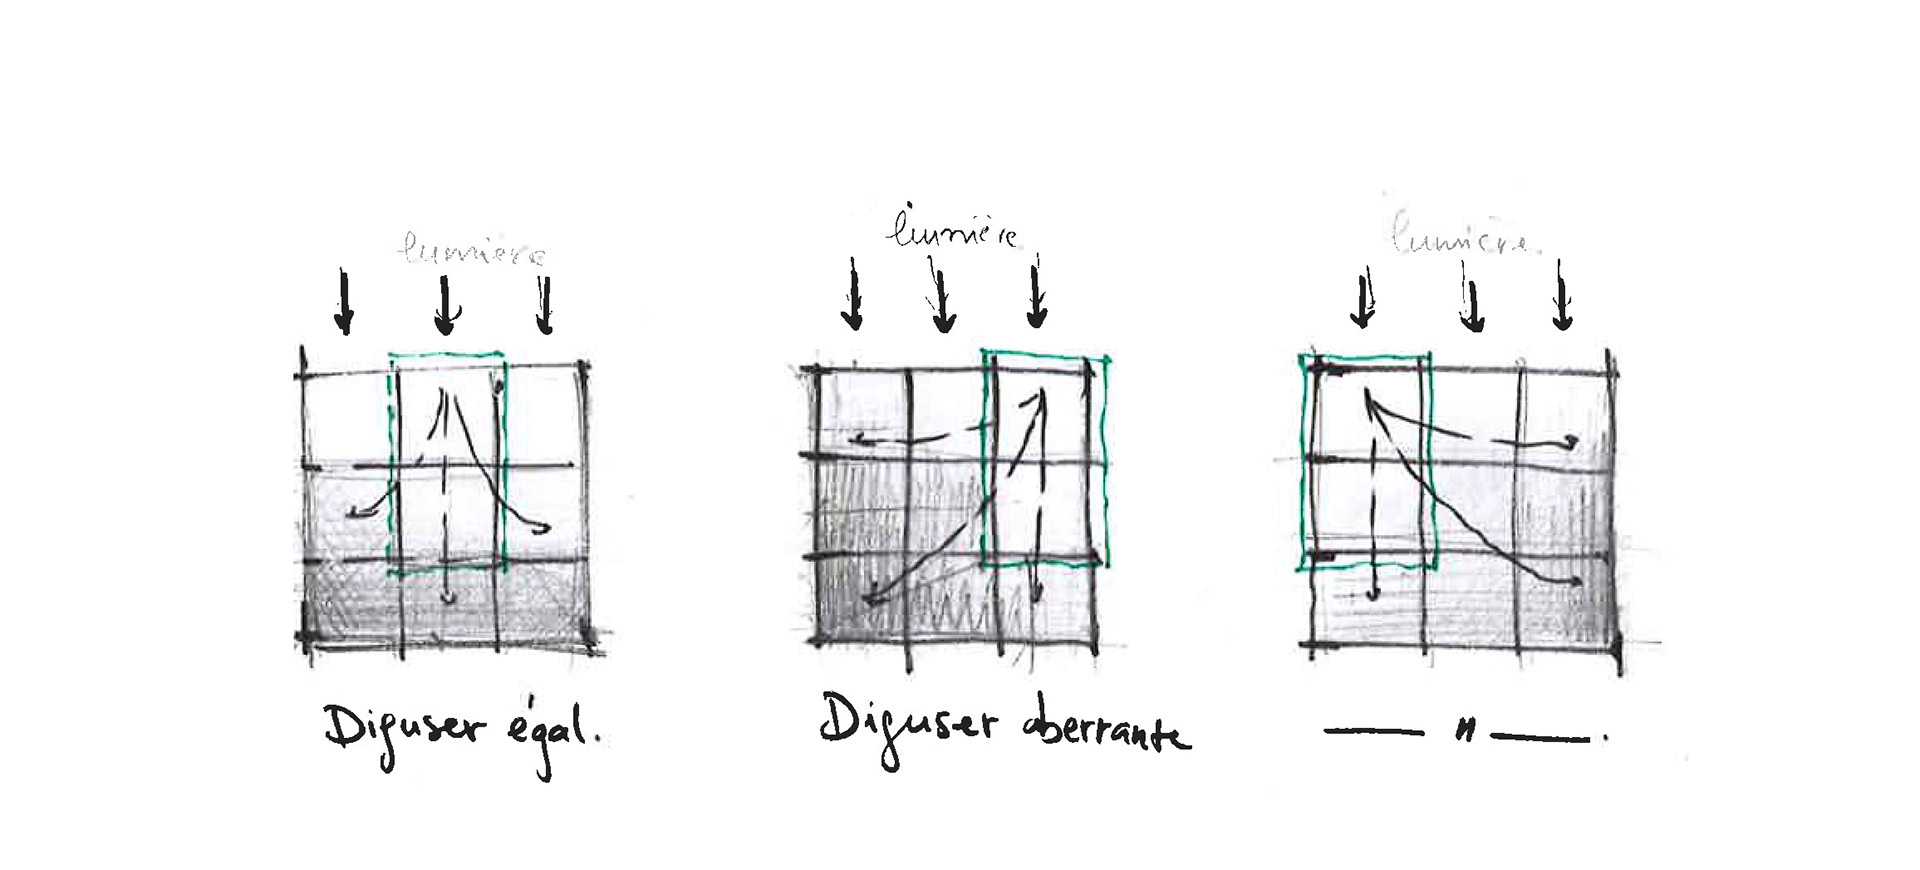 lumière
lumière
lumière
Difuser égal.
Difuser aberrante
— " —.